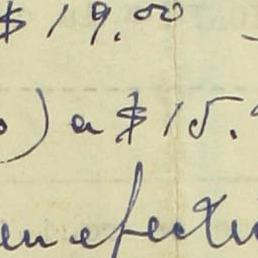 $19.00
) a $15.
en efecti